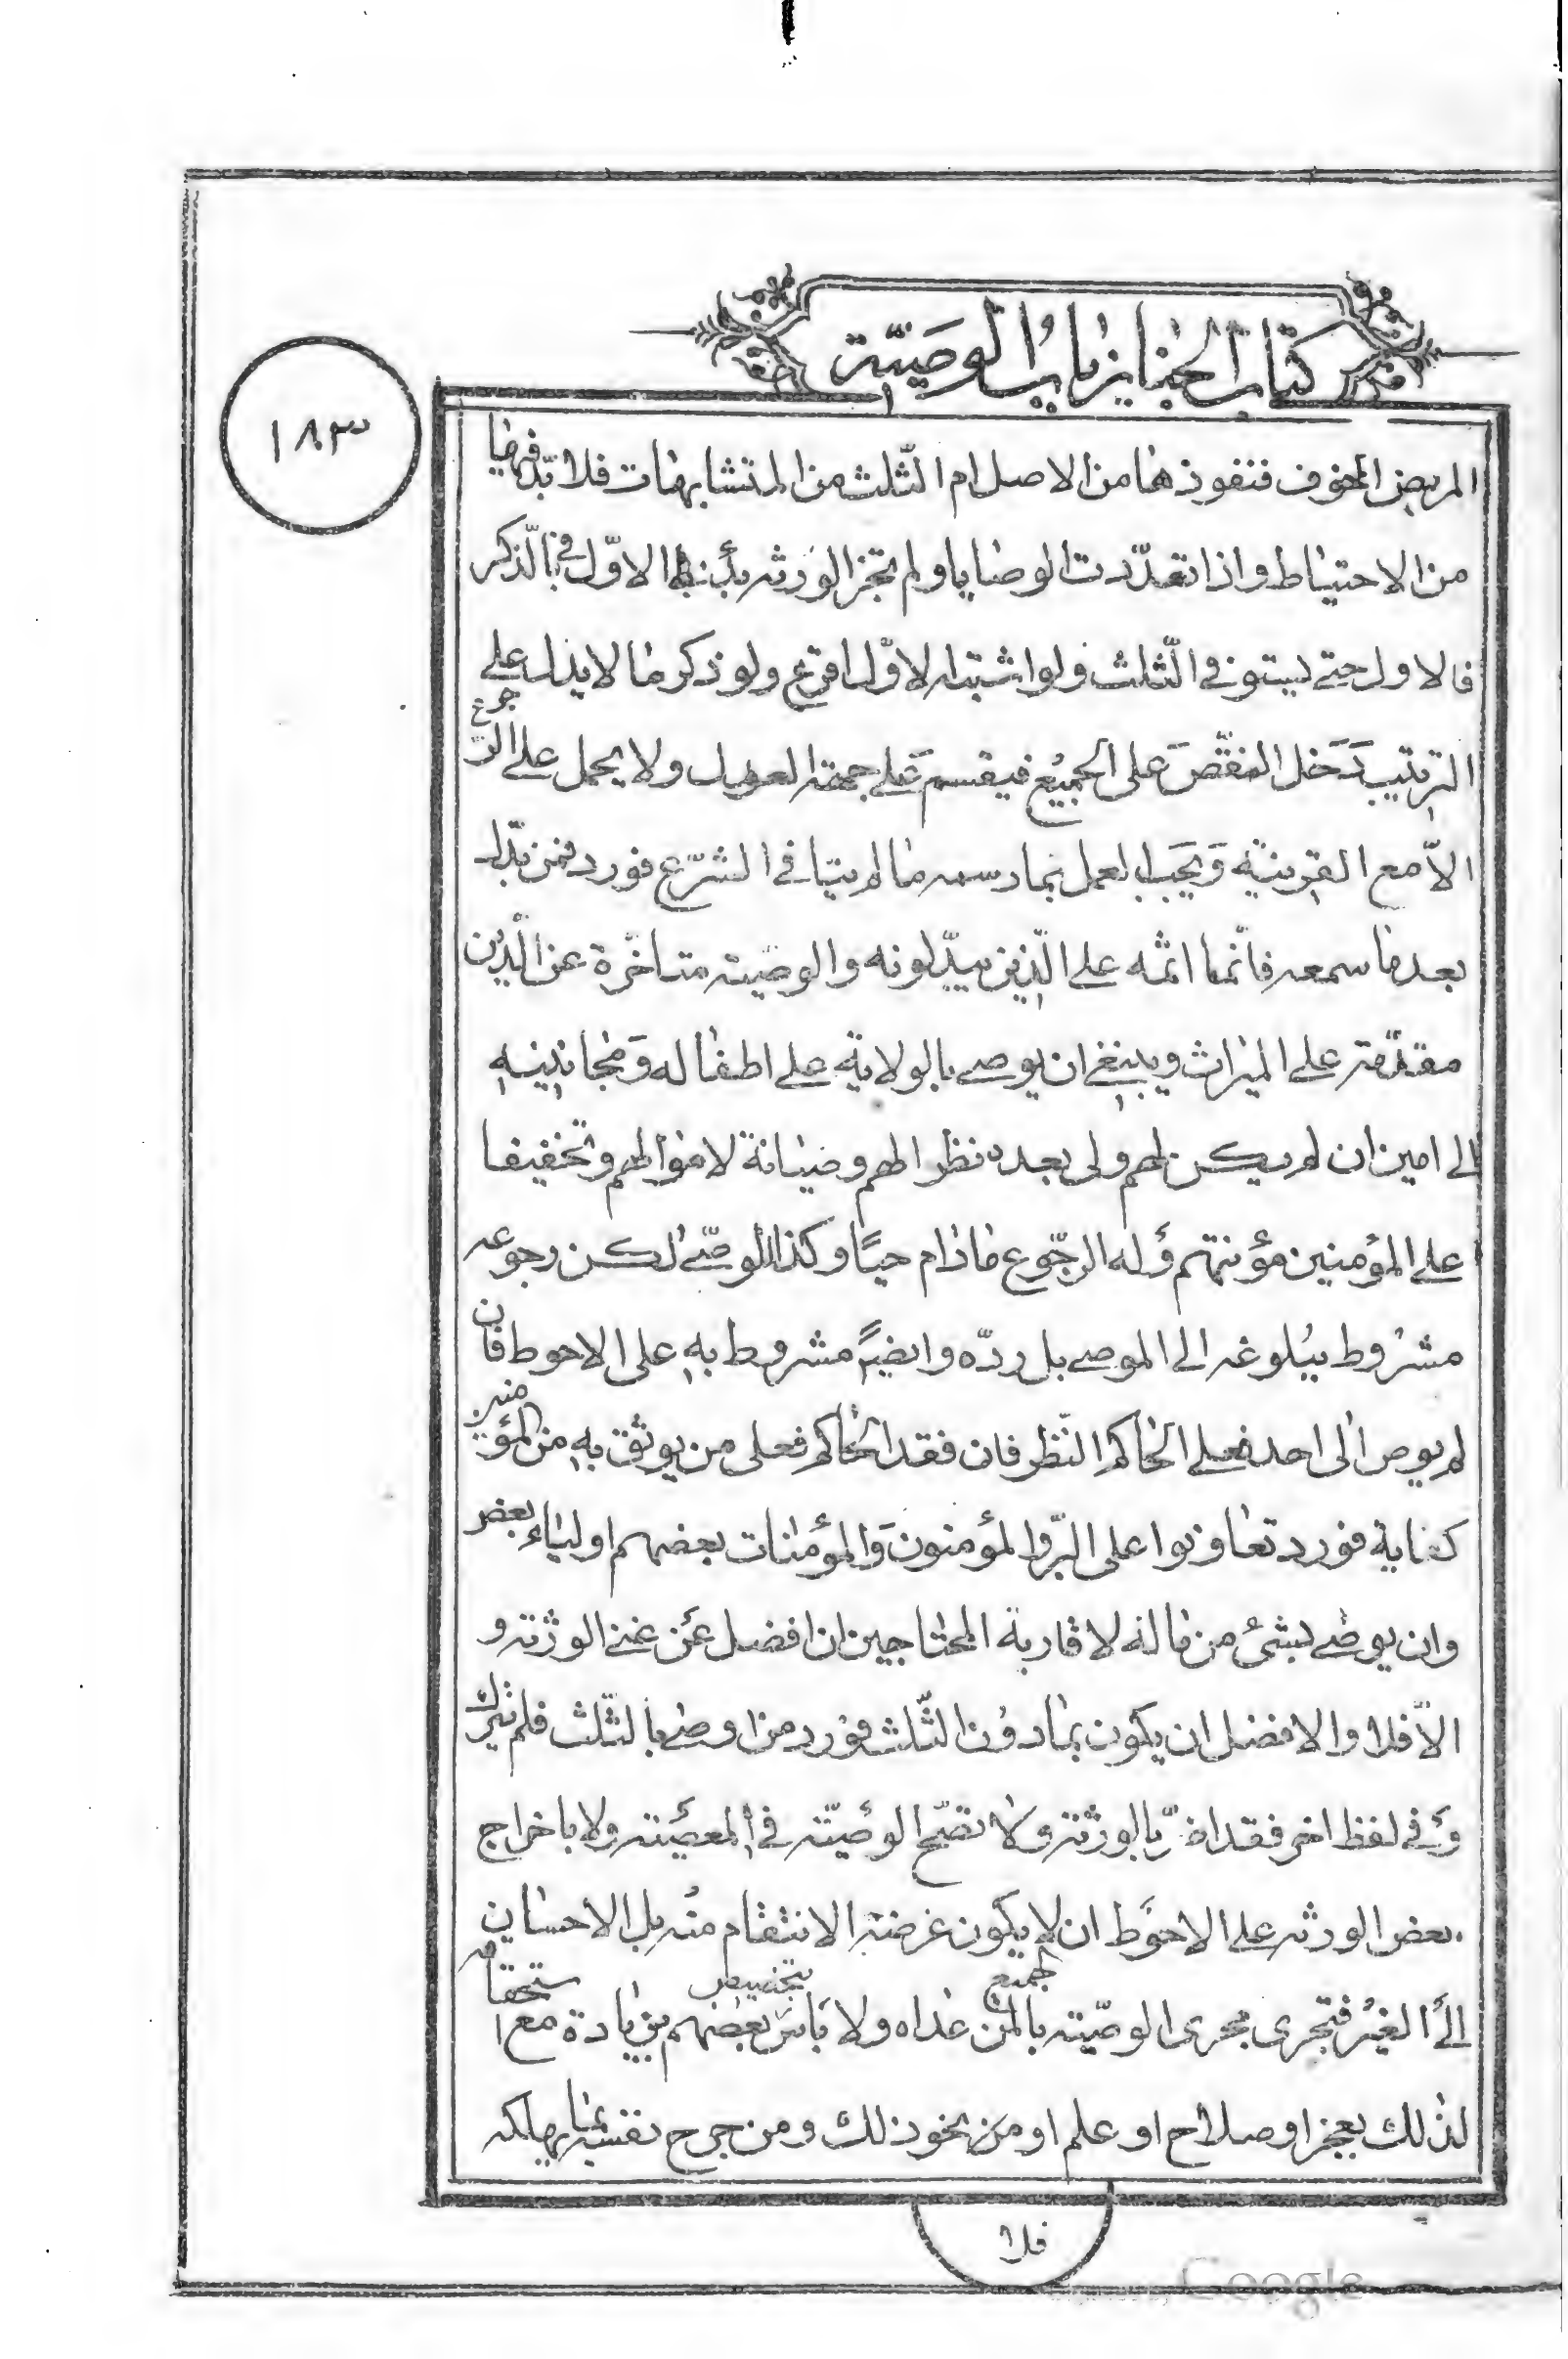 من كتاب الجنايز باب الوصيّة
١٨٣
المريض المخوف فنفوذها من الاصل ام الثّلث من المتشابهات فلا بدّ فيها
من الاحتياط واذا تعدّدت الوصايا ولم تجز الورثه بدأ بالاوّل في الذّكر
فالاول حتى يستوفي الثّلث ولو اشتبه الاوّل اقرع ولو ذكر ما لا يدل على
الترتيب دَخل النقّصَ على الجميع فيقسم عَلى جهة العول ولا يحمل على الرّجوع
الاّ مع القرينة وَيجَب العمل بما رسمه ما لم يناف الشرّع فورد فمن بدّله
بعد ما سمعه فانّما اثمه على الّذين يبدّلونه والوصيّته متاخّرة عن الدّين
مقدّمة على الميراث وينبغي ان يوصى بالولاية على اطفاله وَمجانينه
الى امين ان لم يكن لهم ولى بعده نظرا لهم وصيانة لاموالهم وتخفيفا
على المؤمنين مؤنتهم وَله الرجّوع مادام حيًا وكذا للوصّى لكن رجوعه
مشرُوط ببُلوغه الى الموصى بل ردّه وايضًا مشروط به على الاحوط فان
لم يوص الى احد فعلى الحاكم النّظر فان فقد الحاكم فعلى من يوثق به من المؤمنين
كفاية فورد تعاونوا على البرّ والمؤمنونَ وَالمؤمنات بعضهم اولياء بعض
وان يوصى بشئ من ماله لاقاربه المحتاجين ان افضل عَن غنى الورثة و
الاّ فلا والافضل ان يكون بمادوُن الثّلث فورد من اوصى بالثّلث فلم يترك
وَفي لفظ اخر فقد اضرّ بالورثة ولا تصّح الوصيّته في المعصَيته ولا باخراج
بعض الورثه على الاحوَط ان لا يكون غرضه الانتقام منُه بل الاحسان
الىَ الغير فتجرى مجرى الوصيّته بالجميع لمن عداه ولا بَاس بتخصيص بعضهم بزيادة مع استحقاقه
لذلك بعجز او صلاح او علم او من نحو ذلك ومن جرح نفسه بما يهلكه
فلا
Google